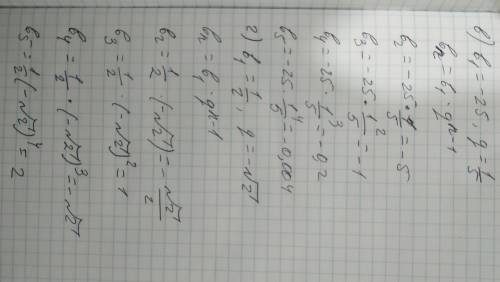 в) b₁ = -25, q = 1/5
bₙ = b₁ · qⁿ⁻¹
b₂ = -25 · 1/5 = -5
b₃ = -25 · 1/5² = -1
b₄ = -25 · 1/5³ = -0,2
b₅ = -25 · 1/5⁴ = -0,004
г) b₁ = 1/2, q = -√2
bₙ = b₁ · qⁿ⁻¹
b₂ = 1/2 · (-√2) = -√2/2
b₃ = 1/2 · (-√2)² = 1
b₄ = 1/2 · (-√2)³ = -√2
b₅ = 1/2 (-√2)⁴ = 2